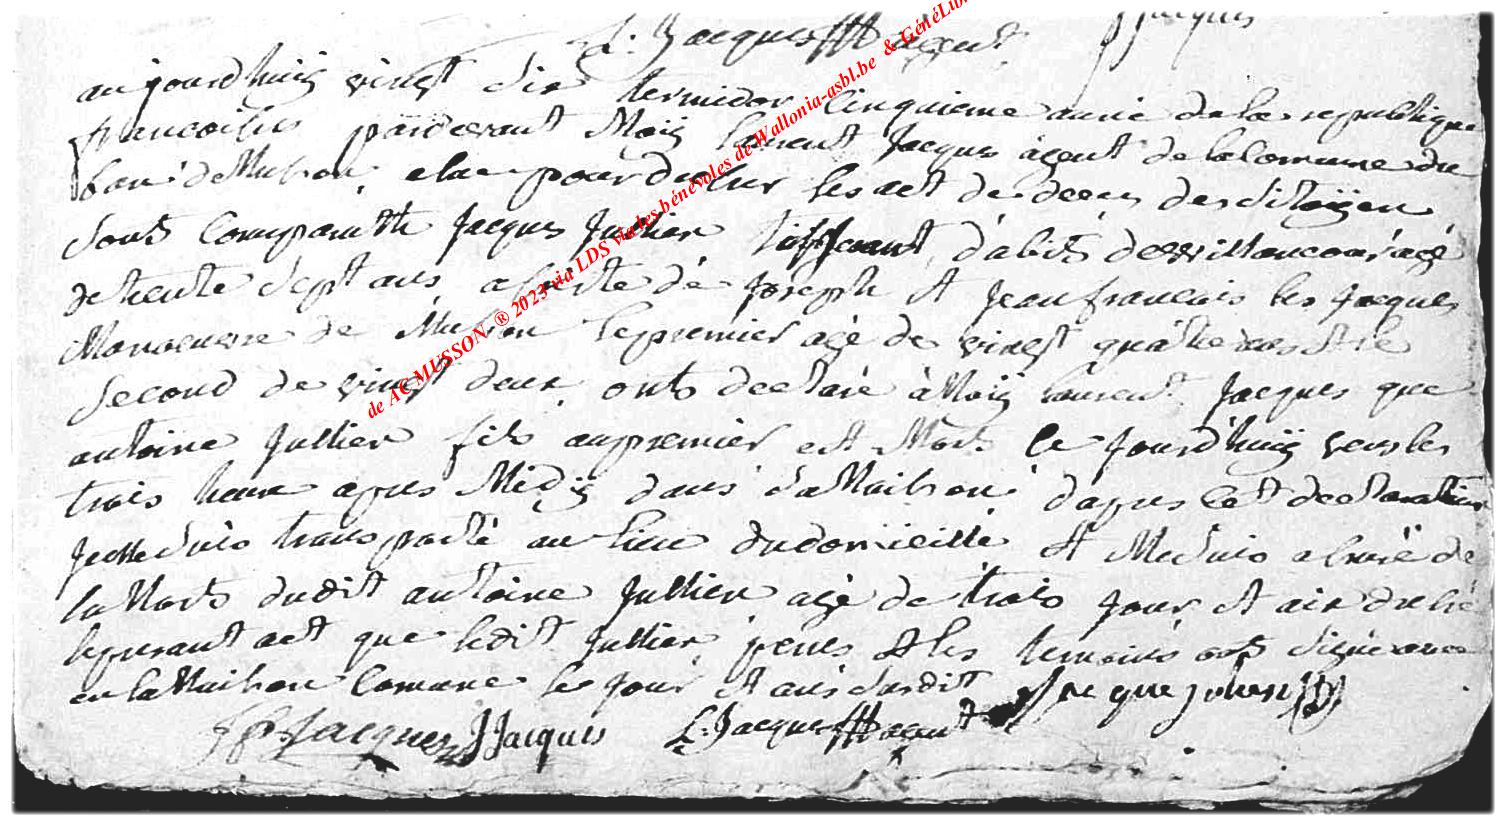 L: Jacques agent JJacques
aujourdhuiÿ vingt Six termidor Cinquieme année de la republique
francoise pardevant Moÿ laurent Jacques agent de la Comune du
ban de Musson elue pour les act de deces des Sitoÿen
Sont Comparuth Jacques Jullier d'abits de willancour agé
de trente Sept ans assisté dé Joseph et Jean francois les Jacques
Manoeuvre de Musson le premier agé de vingt quatre ans et le
Second de vingt deux onts declaré à Moÿ laurent Jacques que
antoine Jullier fils au premier est Morts Ce Jourdhuiÿ vers les
trois heure apres Midÿ dans Sa Maison d'apres Cet declaration
Je me Suis transporté au lieu du domicille et Me Suis assuré de
la Morts dudit antoine Jullier agé de trois Jour et ait dressé
le present act que ledit Jullier peres et les temoins ont Signé avec
en la Maison Comune les Jour et ans Susdit
Jacques JJacques L: Jacques agent Jacque julien
de AC MUSSON. ® 2023 via LDS via les bénévoles de Wallonia-asbl.be & GénéLib